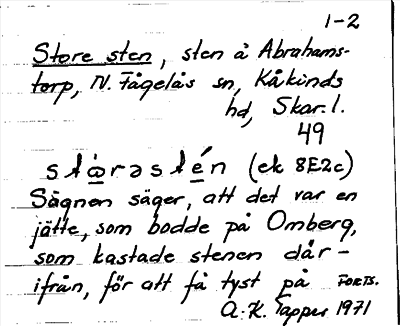 1-2
Store sten, sten å Abrahams-
torp, N. Fågelås sn, Kåkinds
hd, Skar. l.
49
stɷ̀rəstén (ek 8E2c)
Sägnen säger, att det var en
jätte, som bodde på Omberg,
som kastade stenen där-
ifrån, för att få tyst på FORTS.
A.-K. Tapper 1971